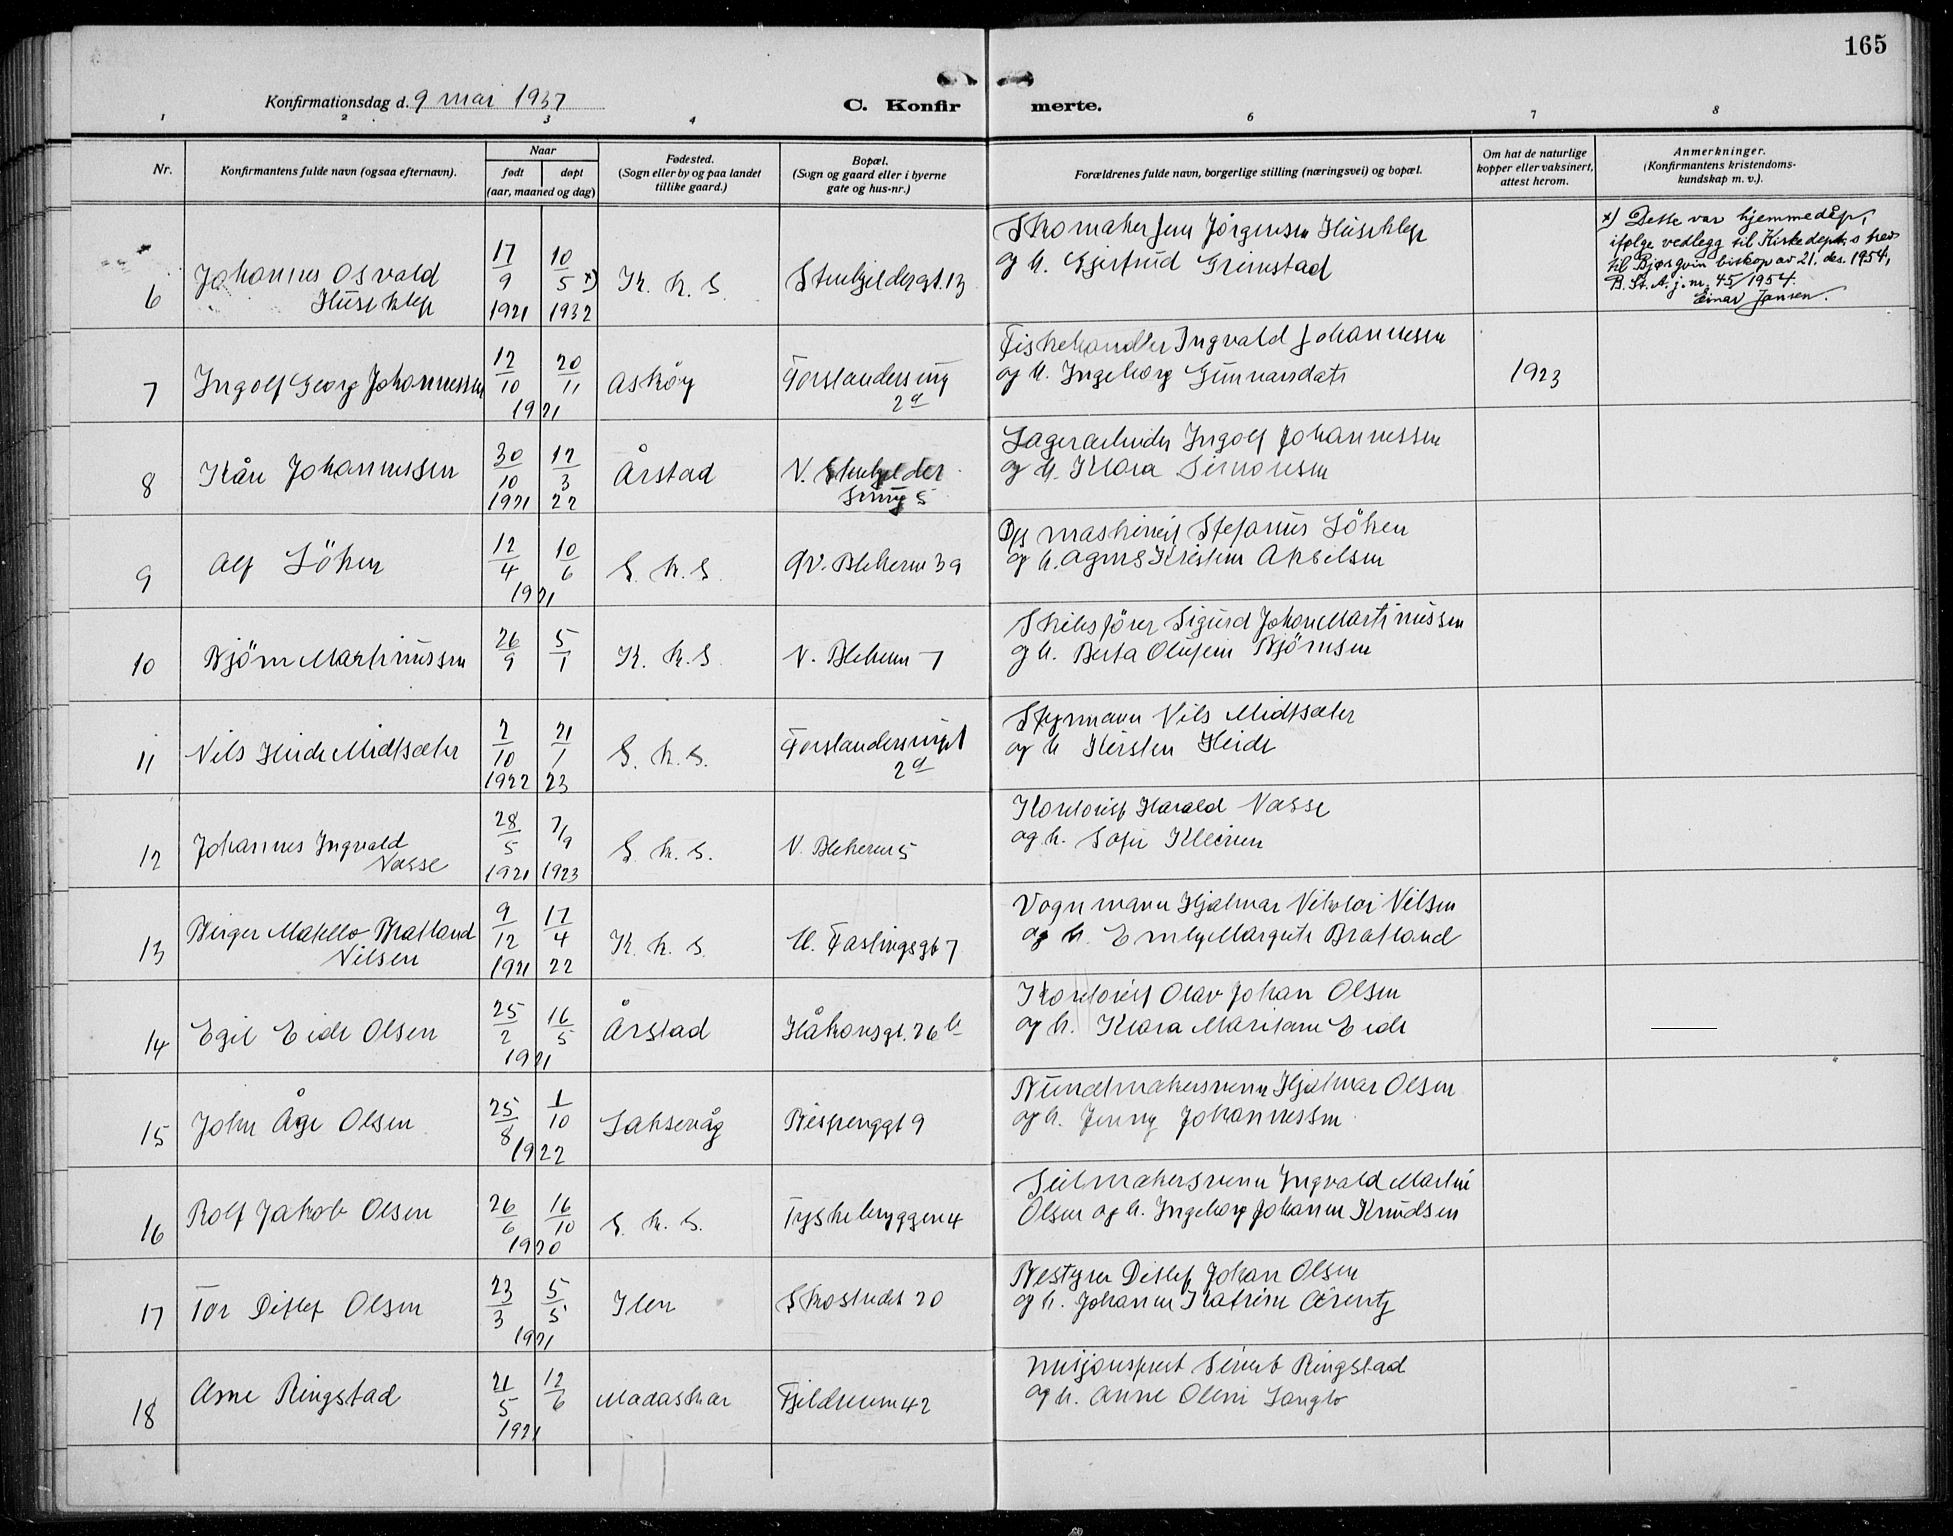 165
Konfirmationsdag d. 9 mai 1937
C. Konfirmerte.
1 2 3 4 6 7 8
Nr.
Konfirmantens fulde navn (ogsaa efternavn).
Naar
født døpt
(aar, maaned og dag)
Fødested.
(Sogn eller by og paa landet
tillike gaard.)
Bopæl.
(Sogn og gaard eller i byerne
gate og hus-nr.)
Forældrenes fulde navn, borgerlige stilling (næringsvei) og bopæl.
Om hat de naturlige
kopper eller vaksinert,
attest herom.
Anmerkninger.
(Konfirmantens kristendoms-
kundskap m. v.).
6 Johannes Osvald
Huseklep
17/9 1921 10/5 x) 1932
K. k. S.
Stenkjeldergt. 13
Skomaker Jens Jörgensen Huseklep
og h. Gjertrud Grimstad
x) Dette var hjemmedåp,
ifølge vedlegg til Kirkedept.s brev
til Bjørgvin biskop av 21. des. 1954,
B. St. A. j. nr. 45/1954.
Einar Jansen.
7 Ingolf Georg Johannessen
12/10 20/11 1921
Askøy
Forstandersmug
2a
Fiskehandler Ingvald Johannessen
og h. Ingeborg Gunnarsdatr
1923
8 Kåre Johannessen
30/10 1921 12/3 22
Årstad
N. Stenkjelder
smug 5
Lagerarbeider Ingolf Johannessen
og h. Klara Simonsen
9 Alf Söken
12/4 10/6 1921
S. k. S.
Øv. Blekevn 3a
D/s maskinist Stefanus Söken
og h. Agnes Kristine Akselsen
10 Björn Martinussen
26/9 5/1
K. k. S.
N. Blekevn 7
Skibsfører Sigurd Johan Martinussen
og h. Berta Olufine Björnsen
11 Nils Heide Midtsæter
2/10 1922 21/1 23
S. k. S.
Forstandersmgt
2a
Styrmann Nils Midtsæter
og h Kirsten Heide
12 Johannes Ingvald
Vasse
28/5 1921 7/9 1923
S. k. S.
N. Blekevn 5
Kontorist Harald Vasse
og h. Sofie Kleiven
13 Birger Bratland
Nilsen
9/12 1921 17/4 22
K. k. S.
U. Fastingsgt 7
Vognmann Hjalmar Nikolai Nilsen
og h. Emly Margrete Bratland
14 Egil Eide Olsen
25/2 16/5 1921
Årstad
Håkonsgt. 26 b
Kontorist Olav Johan Olsen
og h. Klara Eide
15 John Åge Olsen
25/8 1/10 1922
Laksevåg
Bispenggt 9
Buntmakersvenn Hjalmar Olsen
og h. Jenny Johannessen
16 Rolf Jakob Olsen
26/6 16/10 1920
S. k. S.
Tyskebryggen 4
Seilmakersvenn Ingvald Martin
Olsen og h. Ingeborg Johanne Knudsen
17 Tor Ditlef Olsen
23/3 5/5 1921
Ilen
Skostredet 20
Bestyrer Ditlef Johan Olsen
og h. Johanne Katrine Arentz
18 Arne Ringstad
21/5 12/6 1921
Madaskar
Fjeldveien 42
Misjonsprest Sivert Ringstad
og h. Anne Oline Langlo